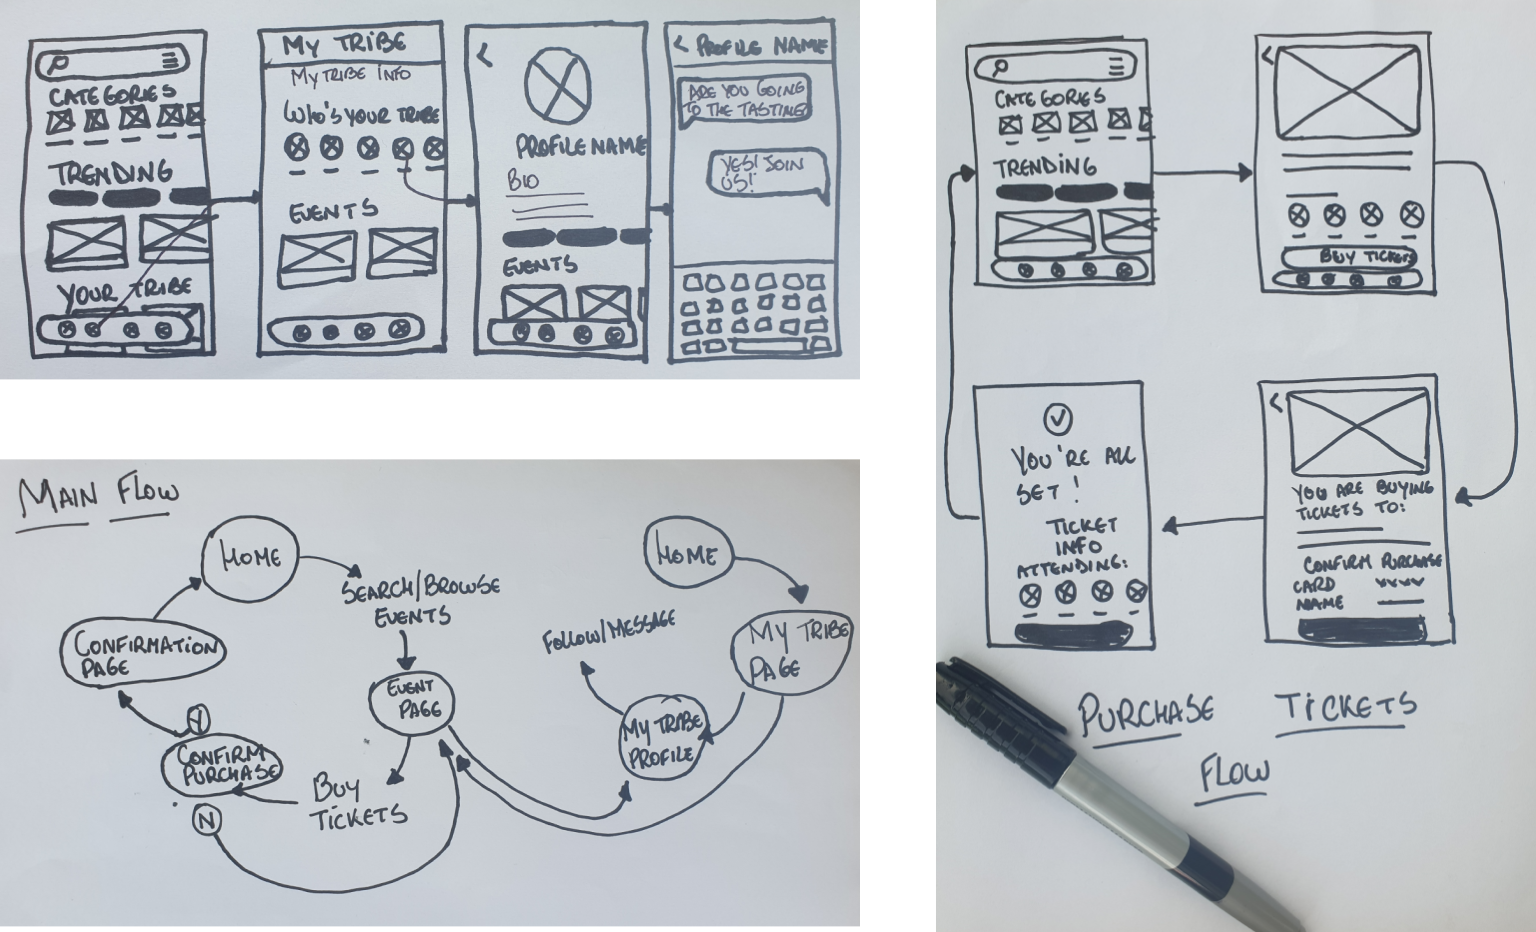 CATEGORIES
TRENDING
YOUR TRIBE
MY TRIBE
MY TRIBE INFO
WHO'S YOUR TRIBE
EVENTS
PROFILE NAME
BIO
EVENTS
PROFILE NAME
ARE YOU GOING
TO THE TASTING
YES! JOIN
US!
MAIN FLOW
HOME
SEARCH/BROWSE
EVENTS
EVENT
PAGE
BUY
TICKETS
CONFIRM
PURCHASE
Y
N
CONFIRMATION
PAGE
HOME
MY TRIBE
PAGE
MY TRIBE
PROFILE
FOLLOW/MESSAGE
CATEGORIES
TRENDING
BUY TICKETS
YOU ARE BUYING
TICKETS TO:
CONFIRM PURCHASE
CARD XXXX
NAME
YOU'RE ALL
SET!
TICKET
INFO
ATTENDING:
PURCHASE TICKETS
FLOW